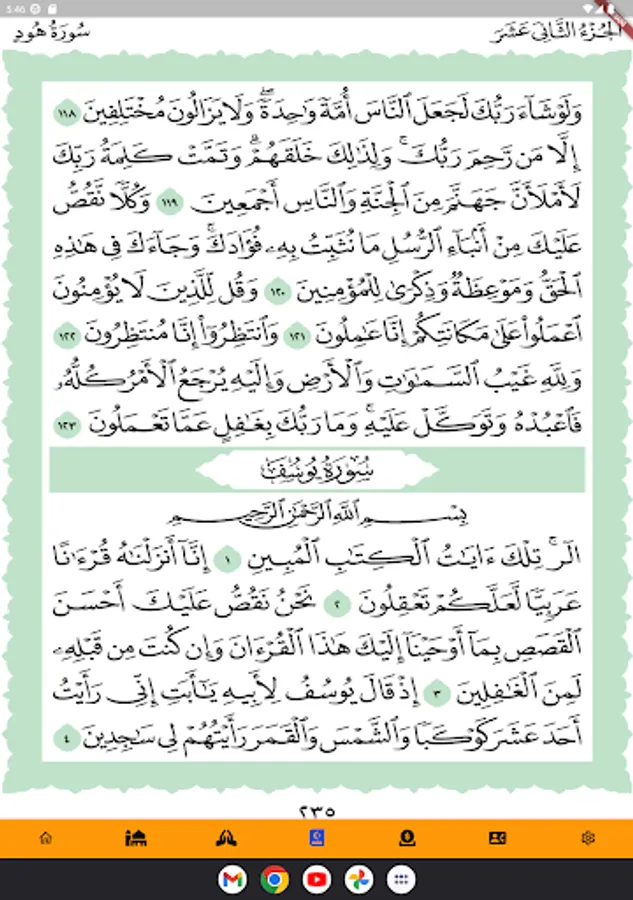 5:46
سُورَةُ هُودٍ
الجُزْءُ الثَّانِي عَشَرَ
وَلَوْ شَآءَ رَبُّكَ لَجَعَلَ ٱلنَّاسَ أُمَّةً وَٰحِدَةً ۖ وَلَا يَزَالُونَ مُخْتَلِفِينَ ١١٨
إِلَّا مَن رَّحِمَ رَبُّكَ ۚ وَلِذَٰلِكَ خَلَقَهُمْ ۗ وَتَمَّتْ كَلِمَةُ رَبِّكَ
لَأَمْلَأَنَّ جَهَنَّمَ مِنَ ٱلْجِنَّةِ وَٱلنَّاسِ أَجْمَعِينَ ١١٩ وَكُلًّا نَّقُصُّ
عَلَيْكَ مِنْ أَنۢبَآءِ ٱلرُّسُلِ مَا نُثَبِّتُ بِهِۦ فُؤَادَكَ ۚ وَجَآءَكَ فِى هَٰذِهِ
ٱلْحَقُّ وَمَوْعِظَةٌ وَذِكْرَىٰ لِلْمُؤْمِنِينَ ١٢٠ وَقُل لِّلَّذِينَ لَا يُؤْمِنُونَ
ٱعْمَلُوا۟ عَلَىٰ مَكَانَتِكُمْ إِنَّا عَٰمِلُونَ ١٢١ وَٱنتَظِرُوٓا۟ إِنَّا مُنتَظِرُونَ ١٢٢
وَلِلَّهِ غَيْبُ ٱلسَّمَٰوَٰتِ وَٱلْأَرْضِ وَإِلَيْهِ يُرْجَعُ ٱلْأَمْرُ كُلُّهُۥ
فَٱعْبُدْهُ وَتَوَكَّلْ عَلَيْهِ ۚ وَمَا رَبُّكَ بِغَٰفِلٍ عَمَّا تَعْمَلُونَ ١٢٣
سُورَةُ يُوسُفَ
بِسْمِ ٱللَّهِ ٱلرَّحْمَٰنِ ٱلرَّحِيمِ
الٓر ۚ تِلْكَ ءَايَٰتُ ٱلْكِتَٰبِ ٱلْمُبِينِ ١ إِنَّآ أَنزَلْنَٰهُ قُرْءَٰنًا
عَرَبِيًّا لَّعَلَّكُمْ تَعْقِلُونَ ٢ نَحْنُ نَقُصُّ عَلَيْكَ أَحْسَنَ
ٱلْقَصَصِ بِمَآ أَوْحَيْنَآ إِلَيْكَ هَٰذَا ٱلْقُرْءَانَ وَإِن كُنتَ مِن قَبْلِهِۦ
لَمِنَ ٱلْغَٰفِلِينَ ٣ إِذْ قَالَ يُوسُفُ لِأَبِيهِ يَٰٓأَبَتِ إِنِّى رَأَيْتُ
أَحَدَ عَشَرَ كَوْكَبًا وَٱلشَّمْسَ وَٱلْقَمَرَ رَأَيْتُهُمْ لِى سَٰجِدِينَ ٤
٢٣٥